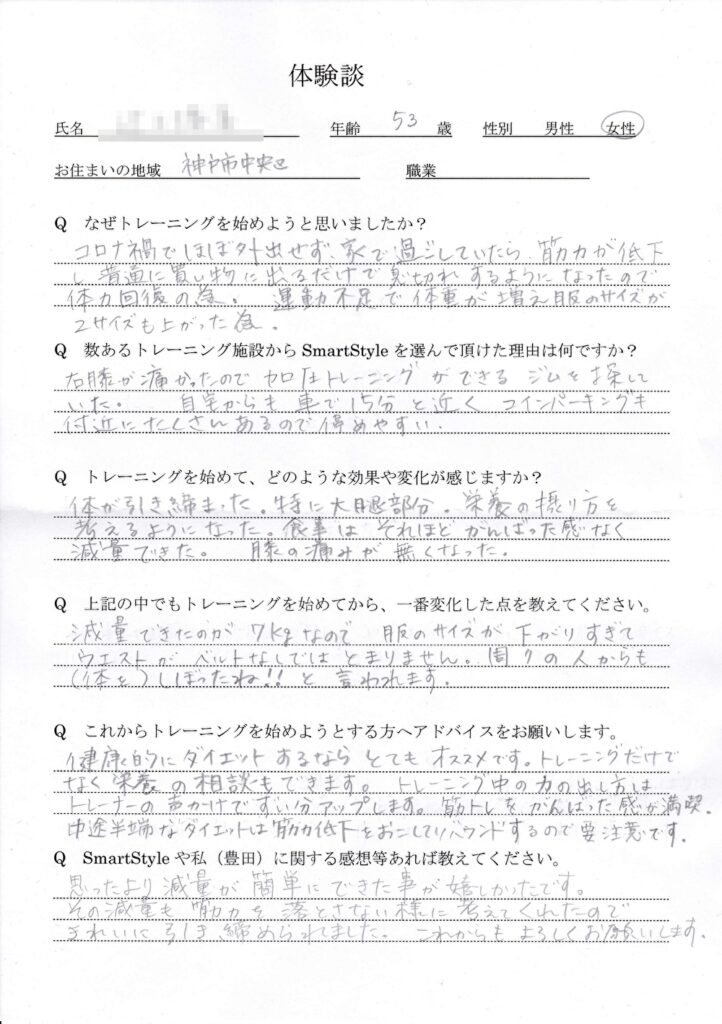 体験談
氏名 年齢 53 歳 性別 男性 女性
お住まいの地域 神戸市中央区 職業
Q なぜトレーニングを始めようと思いましたか？
コロナ禍でほぼ外出せず、家で過ごしていたら、筋力が低下
し普通に買い物に出るだけで息切れするようになったので
体力回復の為。 運動不足で体重が増え服のサイズが
2サイズも上がった為。
Q 数あるトレーニング施設から SmartStyle を選んで頂けた理由は何ですか？
右膝が痛かったので 加圧トレーニングができるジムを探して
いた。 自宅からも車で15分と近く コインパーキングも
付近にたくさんあるので停めやすい.
Q トレーニングを始めて、どのような効果や変化が感じますか？
体が引き締まった。特に大腿部分。栄養の摂り方を
考えるようになった。食事は それほど がんばった感なく
減量できた。 膝の痛みが無くなった.
Q 上記の中でもトレーニングを始めてから、一番変化した点を教えてください。
減量できたのが 7kgなので 服のサイズが下がりすぎて
ウエストが ベルトなしでは とまりません。周りの人からも
(体を)しぼったね!! と 言われます.
Q これからトレーニングを始めようとする方へアドバイスをお願いします。
健康的にダイエット するなら とても オススメです。トレーニングだけで
なく栄養の相談もできます。トレーニング中の力の出し方は
トレーナーの声かけでずい分アップします。筋トレをがんばった感が満喫.
中途半端なダイエットは筋力低下をおこしてリバウンドするので要注意です.
Q SmartStyle や私（豊田）に関する感想等あれば教えてください。
思ったより減量が簡単にできた事が嬉しかったです。
その減量も筋力を落とさない様に考えてくれたので
きれいに引き締められました。これからもよろしくお願いします.